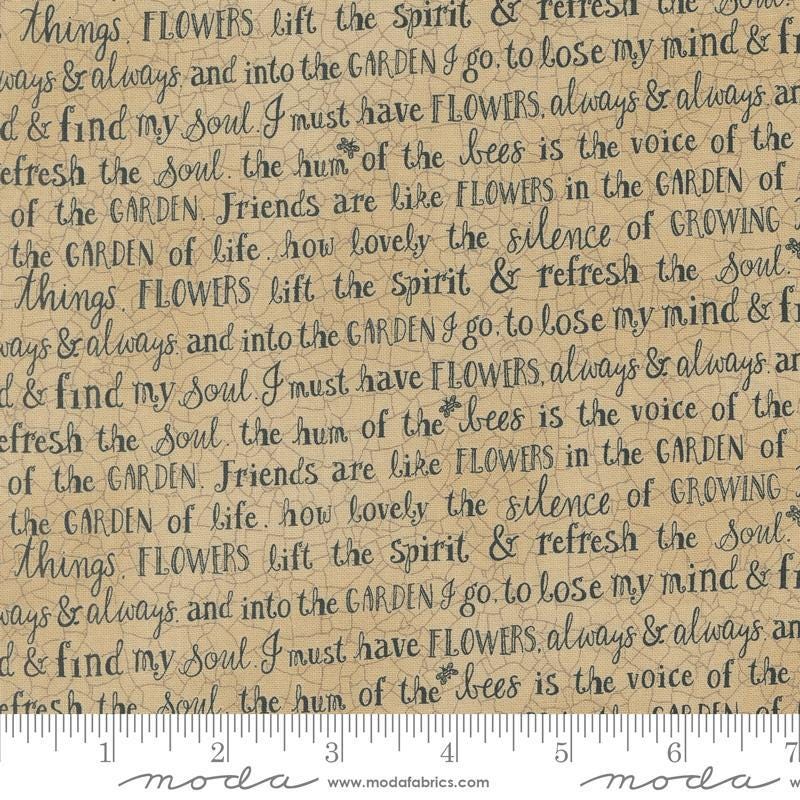 things. FLOWERS lift the spirit & refresh the soul.
ways & always. and into the GARDEN I go, to lose my mind & fi
d & find my soul. I must have FLOWERS, always & always. an
efresh the soul. the hum of the bees is the voice of the
of the GARDEN. Friends are like FLOWERS in the GARDEN of
the GARDEN of life. how lovely the silence of GROWING
things. FLOWERS lift the spirit & refresh the soul.
ways & always. and into the GARDEN I go, to lose my mind & fi
d & find my soul. I must have FLOWERS, always & always. an
efresh the soul. the hum of the bees is the voice of the
of the GARDEN. Friends are like FLOWERS in the GARDEN of
the GARDEN of life. how lovely the silence of GROWING
things. FLOWERS lift the spirit & refresh the soul.
ways & always. and into the GARDEN I go, to lose my mind & fi
d & find my soul. I must have FLOWERS, always & always. an
efresh the soul. the hum of the bees is the voice of the
GARDEN of
1 2 3 4 5 6 7
moda www.modafabrics.com moda w